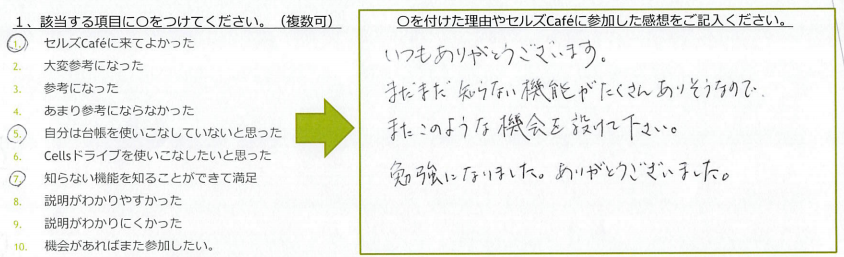 1、該当する項目に〇をつけてください。（複数可）
1. セルズCaféに来てよかった
2. 大変参考になった
3. 参考になった
4. あまり参考にならなかった
5. 自分は台帳を使いこなしていないと思った
6. Cellsドライブを使いこなしたいと思った
7. 知らない機能を知ることができて満足
8. 説明がわかりやすかった
9. 説明がわかりにくかった
10. 機会があればまた参加したい。
〇を付けた理由やセルズCaféに参加した感想をご記入ください。
いつもありがとうございます。
まだまだ知らない機能がたくさんありそうなので、
またこのような機会を設けて下さい。
勉強になりました。ありがとうございました。